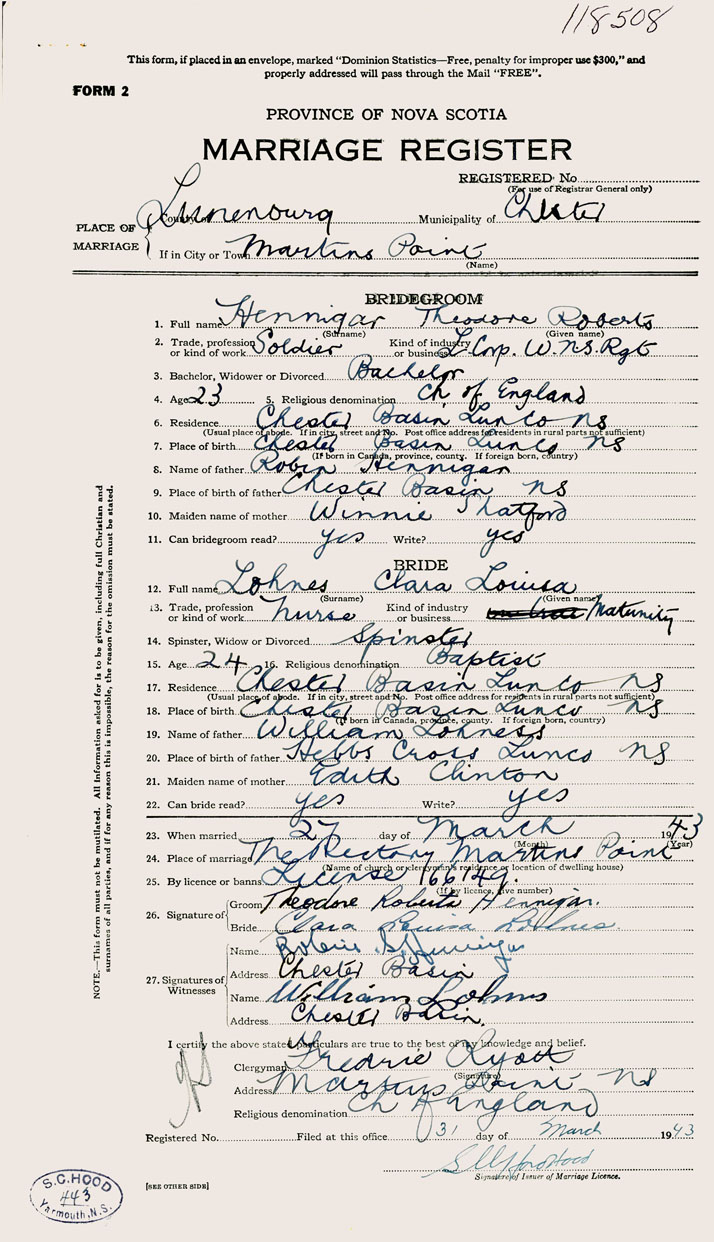 118508
This form, if placed in an envelope, marked "Dominion Statistics—Free, penalty for improper use $300," and
properly addressed will pass through the Mail "FREE".
FORM 2
PROVINCE OF NOVA SCOTIA
MARRIAGE REGISTER
REGISTERED No.
(For use of Registrar General only)
PLACE OF MARRIAGE
County of Lunenburg Municipality of Chester
If in City or Town Martins Point
(Name)
BRIDEGROOM
1. Full name Hennigar Theodore Roberts
(Surname) (Given name)
2. Trade, profession or kind of work Soldier Kind of industry or business L Corp. W.N.S. Rgt
3. Bachelor, Widower or Divorced Bachelor
4. Age 23 5. Religious denomination Ch of England
6. Residence Chester Basin Lun Co NS
(Usual place of abode. If in city, street and No. Post office address for residents in rural parts not sufficient)
7. Place of birth Chester Basin Lun Co NS
(If born in Canada, province, county. If foreign born, country)
8. Name of father Robin Hennigar
9. Place of birth of father Chester Basin NS
10. Maiden name of mother Winnie Shatford
11. Can bridegroom read? yes Write? yes
BRIDE
12. Full name Lohnes Clara Louisa
(Surname) (Given name)
13. Trade, profession or kind of work Nurse Kind of industry or business Maternity
14. Spinster, Widow or Divorced Spinster
15. Age 24 16. Religious denomination Baptist
17. Residence Chester Basin Lun Co NS
(Usual place of abode. If in city, street and No. Post office address for residents in rural parts not sufficient)
18. Place of birth Chester Basin Lun Co NS
(If born in Canada, province, county. If foreign born, country)
19. Name of father William Lohness
20. Place of birth of father Hebbs Cross Lun Co NS
21. Maiden name of mother Edith Clinton
22. Can bride read? yes Write? yes
23. When married 27 day of March 1943
(Month) (Year)
24. Place of marriage The Rectory Martins Point
(Name of church or clergymen's residence or location of dwelling house)
25. By licence or banns License 166149
(If by licence, give number)
26. Signature of
Groom Theodore Roberts Hennigar.
Bride Clara Louisa Lohnes.
27. Signatures of Witnesses
Name Robin Hennigar
Address Chester Basin
Name William Lohnes
Address Chester Basin.
I certify the above stated particulars are true to the best of my knowledge and belief.
Clergyman Fredric Ryott
(Signature)
Address Martins Point NS
Religious denomination Ch of England
Registered No. Filed at this office 31 day of March 1943
Signature of Issuer of Marriage Licence.
[SEE OTHER SIDE]
S.C. HOOD
443
Yarmouth, N.S.
NOTE.—This form must not be mutilated. All Information asked for is to be given, including full Christian and
surnames of all parties, and if for any reason this is impossible, the reason for the omission must be stated.